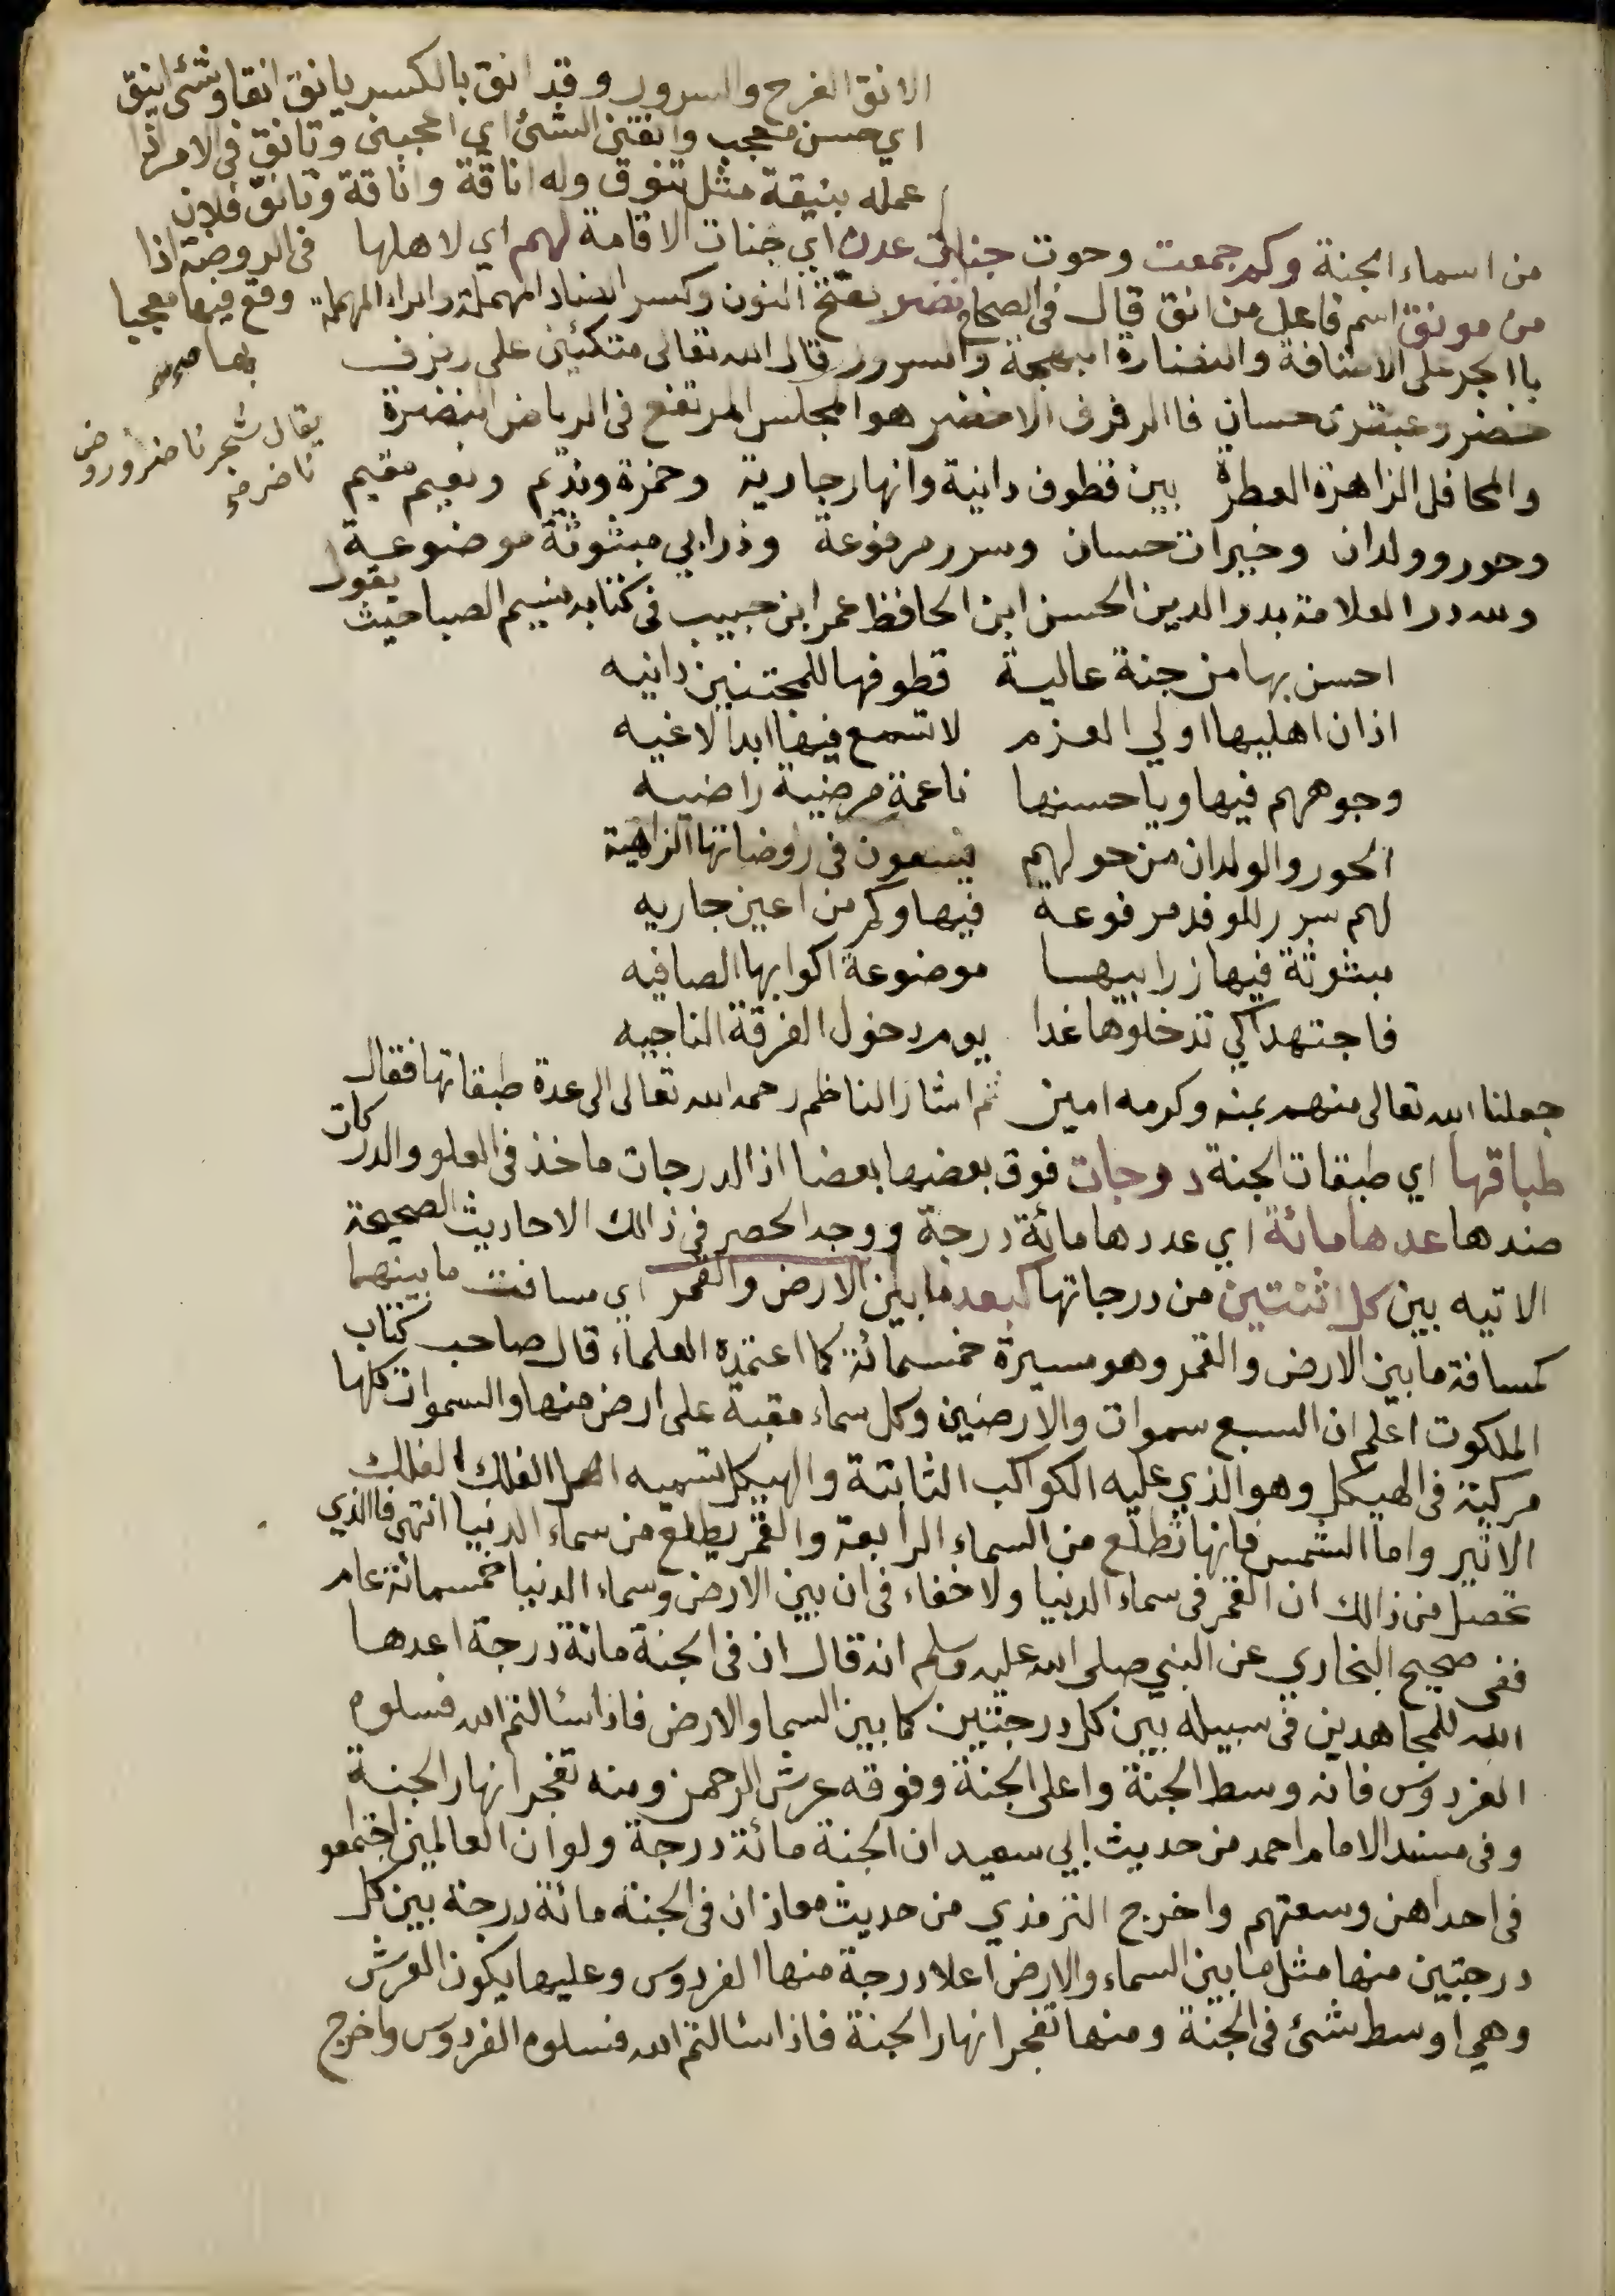 الانق الفرح والسرور وقد انق بالكسر يانق انقا وشئ انيق
اي حسن معجب وانقنى الشئ اي اعجبنى وتانق فى الامر اذا
عمله بنيقة مثل تنوق وله اناقة واناقة وتانق فلان
فى الروضة اذا
وقع فيها معجبا
بها صح
من اسماء الجنة وكم جمعت وحوت جنات عدن اي جنات الاقامة لهم اي لاهلها
من مونق اسم فاعل من انق قال فى الصحاح نضر بفتح النون وكسر الضاد المهملة والراء المهملة
باالجر على الاضافة والنضارة البهجة والسرور قال الله تعالى متكئين على رفرف
خضر وعبقرى حسان فاالرفرف الاخضر هو المجلس المرتفع فى الرياض النضرة
يقال شجر ناضر وروض
ناضر
والمحافل الزاهرة العطرة بين قطوف دانية وانهار جارية وخمرة ونديم ونعيم مقيم
وحور وولدان وخيرات حسان وسرر مرفوعة وذرابي مبثوثة موضوعة
ولله در العلامة بدر الدين الحسن ابن الحافظ عمر ابن حبيب فى كتابه نسيم الصبا حيث يقول
احسن بها من جنة عالية قطوفها للمجتنين دانيه
اذان اهليها اولي العزم لا تسمع فيها ابدا لاغيه
وجوههم فيها ويا حسنها ناعمة مرضية راضيه
الحور والولدان من حولهم يسعون فى روضاتها الزاهية
لهم سرر للوفد مرفوعة فيها وكم من اعين جاريه
مبثوثة فيها زرابيها موضوعة اكوابها الصافيه
فاجتهدا كي تدخلوها غدا يوم دخول الفرقة الناجيه
جعلنا الله تعالى منهم بمنه وكرمه امين ثم اشار الناظم رحمه الله تعالى الى عدة طبقاتها فقال
طباقها اي طبقات الجنة درجات فوق بعضها بعضا اذ الدرجات ماخذ فى العلو والدركات
ضدها عدها مائة اي عددها مائة درجة ووجد الحصر في ذالك الاحاديث الصحيحة
الاتيه بين كل اثنتين من درجاتها كبعد ما بين الارض والقمر اي مسافت ما بينهما
كمسافة ما بين الارض والقمر وهو مسيرة خمسمائة كما اعتمده العلماء قال صاحب كتاب
الملكوت اعلم ان السبع سموات والارضين وكل سماء مقبة على ارض منها والسموات كلها
مركبة فى الهيكل وهو الذي عليه الكواكب الثابتة والهيكل تسميه اهل الفلك الفلك
الاثير واما الشمس فانها تطلع من السماء الرابعة والقمر يطلع من سماء الدنيا انتهى فاالذي
تحصل من ذالك ان القمر فى سماء الدنيا ولا خفاء فى ان بين الارض وسماء الدنيا خمسمائة عام
ففى صحيح البخاري عن النبي صلى الله عليه وسلم انه قال ان فى الجنة مائة درجة اعدها
الله للمجاهدين فى سبيله بين كل درجتين كما بين السما والارض فاذا سالتم الله فسلوه
الفردوس فانه وسط الجنة واعلى الجنة وفوقه عرش الرحمن ومنه تفجر انهار الجنة
وفى مسند الامام احمد من حديث ابي سعيد ان الجنة مائة درجة ولو ان العالمين اجتمعو
فى احداهن وسعتهم واخرج الترمذي من حديث معاذ ان فى الجنة مائة درجة بين كل
درجتين منها مثل ما بين السماء والارض اعلا درجة منها الفردوس وعليها يكون العرش
وهي اوسط شئ فى الجنة ومنها تفجر انهار الجنة فاذا سالتم الله فسلوه الفردوس واخرج